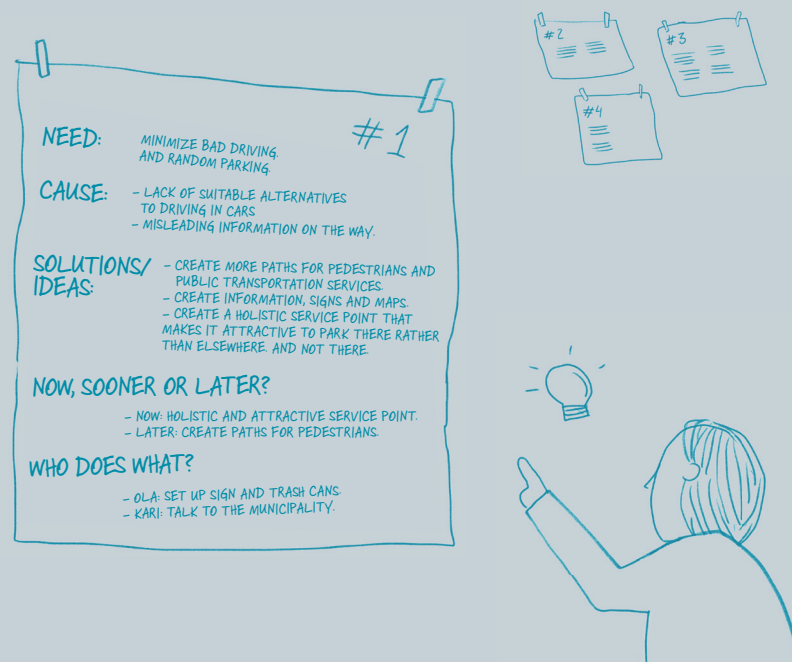 #1
NEED: MINIMIZE BAD DRIVING.
AND RANDOM PARKING.
CAUSE: – LACK OF SUITABLE ALTERNATIVES
TO DRIVING IN CARS
– MISLEADING INFORMATION ON THE WAY.
SOLUTIONS/ – CREATE MORE PATHS FOR PEDESTRIANS AND
IDEAS: PUBLIC TRANSPORTATION SERVICES.
– CREATE INFORMATION, SIGNS AND MAPS.
– CREATE A HOLISTIC SERVICE POINT THAT
MAKES IT ATTRACTIVE TO PARK THERE RATHER
THAN ELSEWHERE. AND NOT THERE.
NOW, SOONER OR LATER?
– NOW: HOLISTIC AND ATTRACTIVE SERVICE POINT.
– LATER: CREATE PATHS FOR PEDESTRIANS.
WHO DOES WHAT?
– OLA: SET UP SIGN AND TRASH CANS.
– KARI: TALK TO THE MUNICIPALITY.
#2
#3
#4